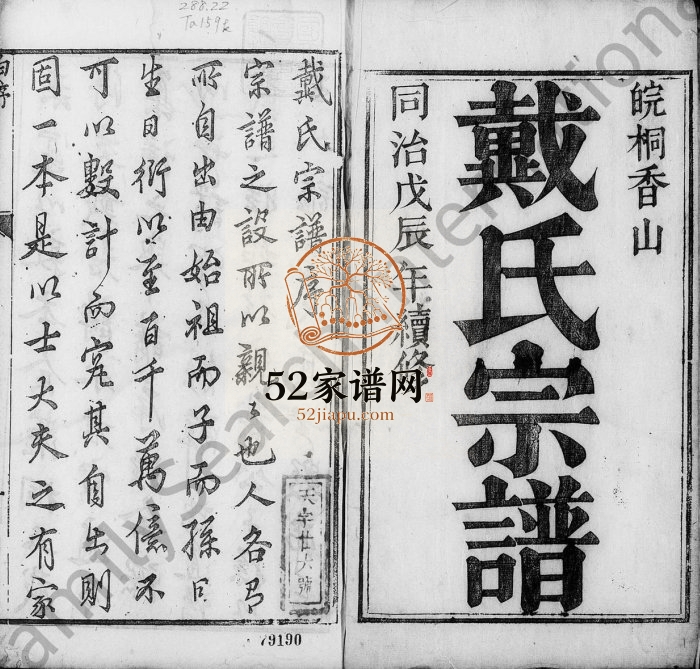 皖桐香山
戴氏宗譜
同治戊辰年續修
戴氏宗譜序
宗譜之設所以親親也人各有
所自出由始祖而子而孫曰
生日衍以至百千萬億不
可以數計而究其自出則
固一本是以士大夫之有家
自序
天字廿六號
79190
288.22
Ta159
52家谱网
52jiapu.com
FamilySearch International